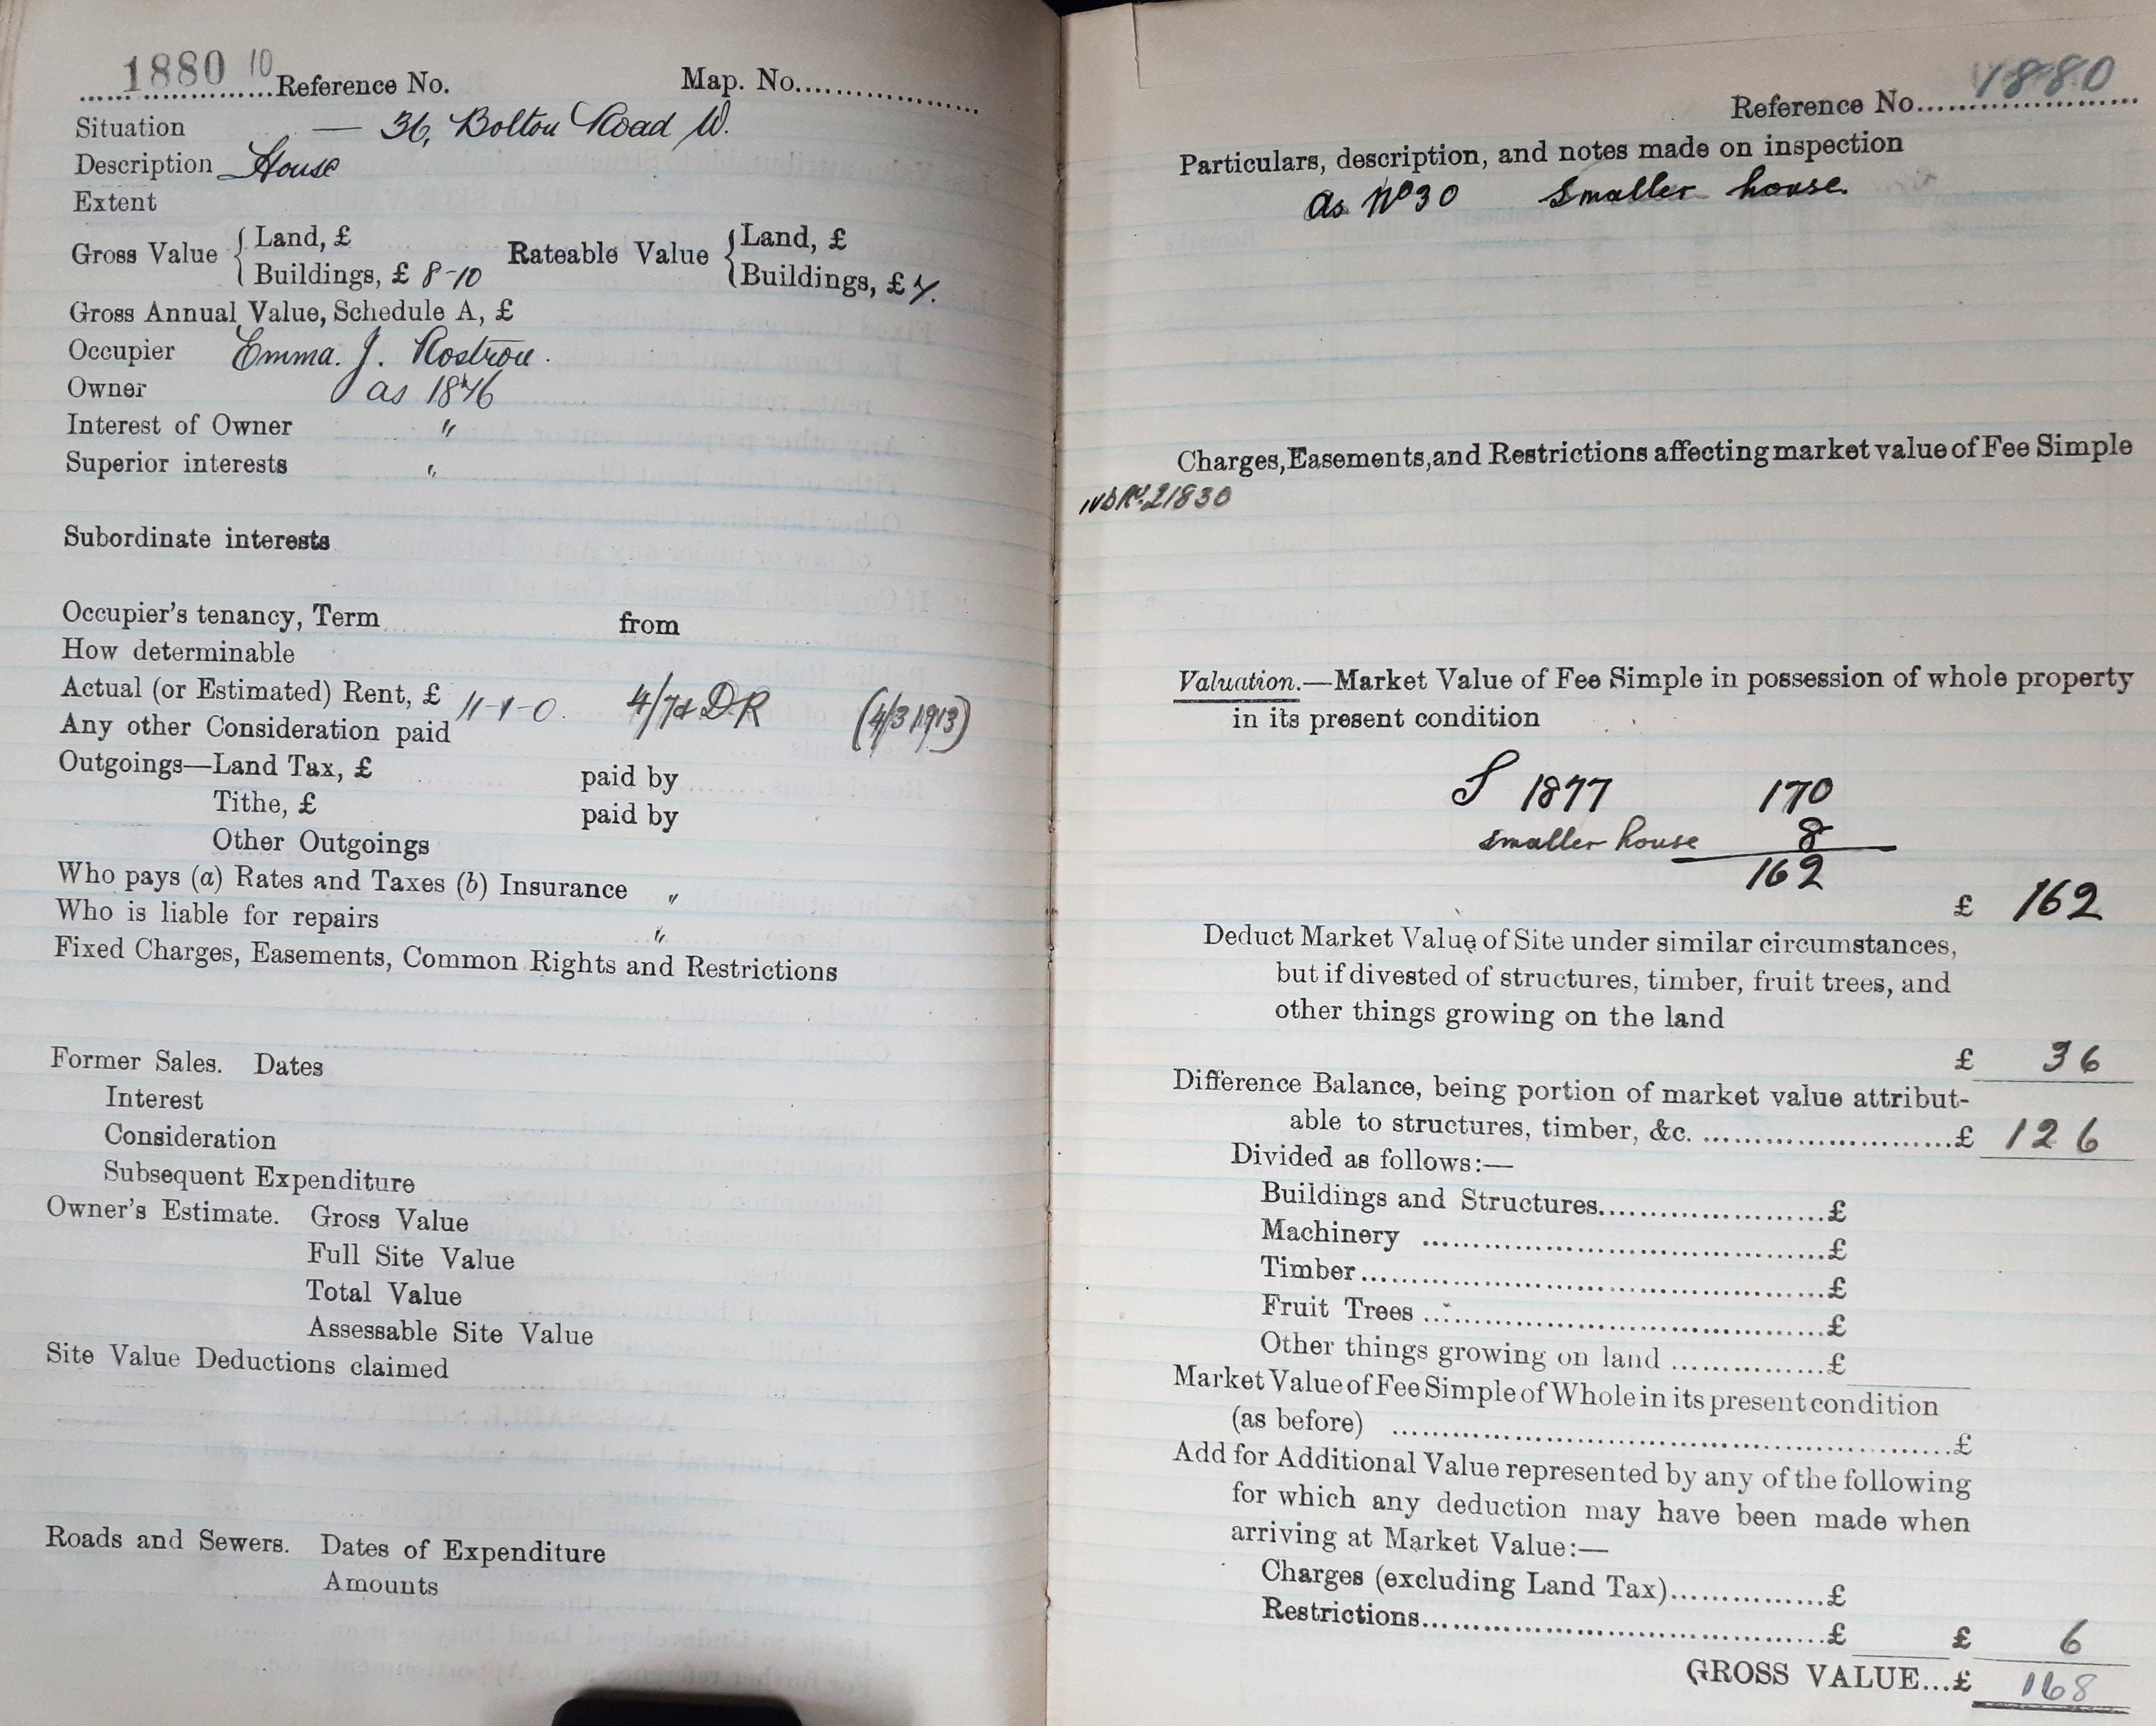 1880 10 Reference No. Map. No.
Situation — 36, Bolton Road W.
Description House
Extent
Gross Value { Land, £ Rateable Value { Land, £
Buildings, £ 8-10 Buildings, £ 7.
Gross Annual Value, Schedule A, £
Occupier Emma. J. Rostron.
Owner as 1876
Interest of Owner "
Superior interests "
Subordinate interests
Occupier's tenancy, Term from
How determinable
Actual (or Estimated) Rent, £ 11-1-0. 4/7d DR (4/3/1913)
Any other Consideration paid
Outgoings—Land Tax, £ paid by
Tithe, £ paid by
Other Outgoings
Who pays (a) Rates and Taxes (b) Insurance "
Who is liable for repairs "
Fixed Charges, Easements, Common Rights and Restrictions
Former Sales. Dates
Interest
Consideration
Subsequent Expenditure
Owner's Estimate. Gross Value
Full Site Value
Total Value
Assessable Site Value
Site Value Deductions claimed
Roads and Sewers. Dates of Expenditure
Amounts
1880
Reference No.
Particulars, description, and notes made on inspection
as No 30 Smaller house.
Charges, Easements, and Restrictions affecting market value of Fee Simple
Valuation.—Market Value of Fee Simple in possession of whole property
in its present condition
S 1877 170
smaller house 8
162
£ 162
Deduct Market Value of Site under similar circumstances,
but if divested of structures, timber, fruit trees, and
other things growing on the land
£ 36
Difference Balance, being portion of market value attribut-
able to structures, timber, &c. £ 126
Divided as follows:—
Buildings and Structures £
Machinery £
Timber £
Fruit Trees £
Other things growing on land £
Market Value of Fee Simple of Whole in its present condition
(as before) £
Add for Additional Value represented by any of the following
for which any deduction may have been made when
arriving at Market Value:—
Charges (excluding Land Tax) £
Restrictions £ £ 6
GROSS VALUE...£ 168